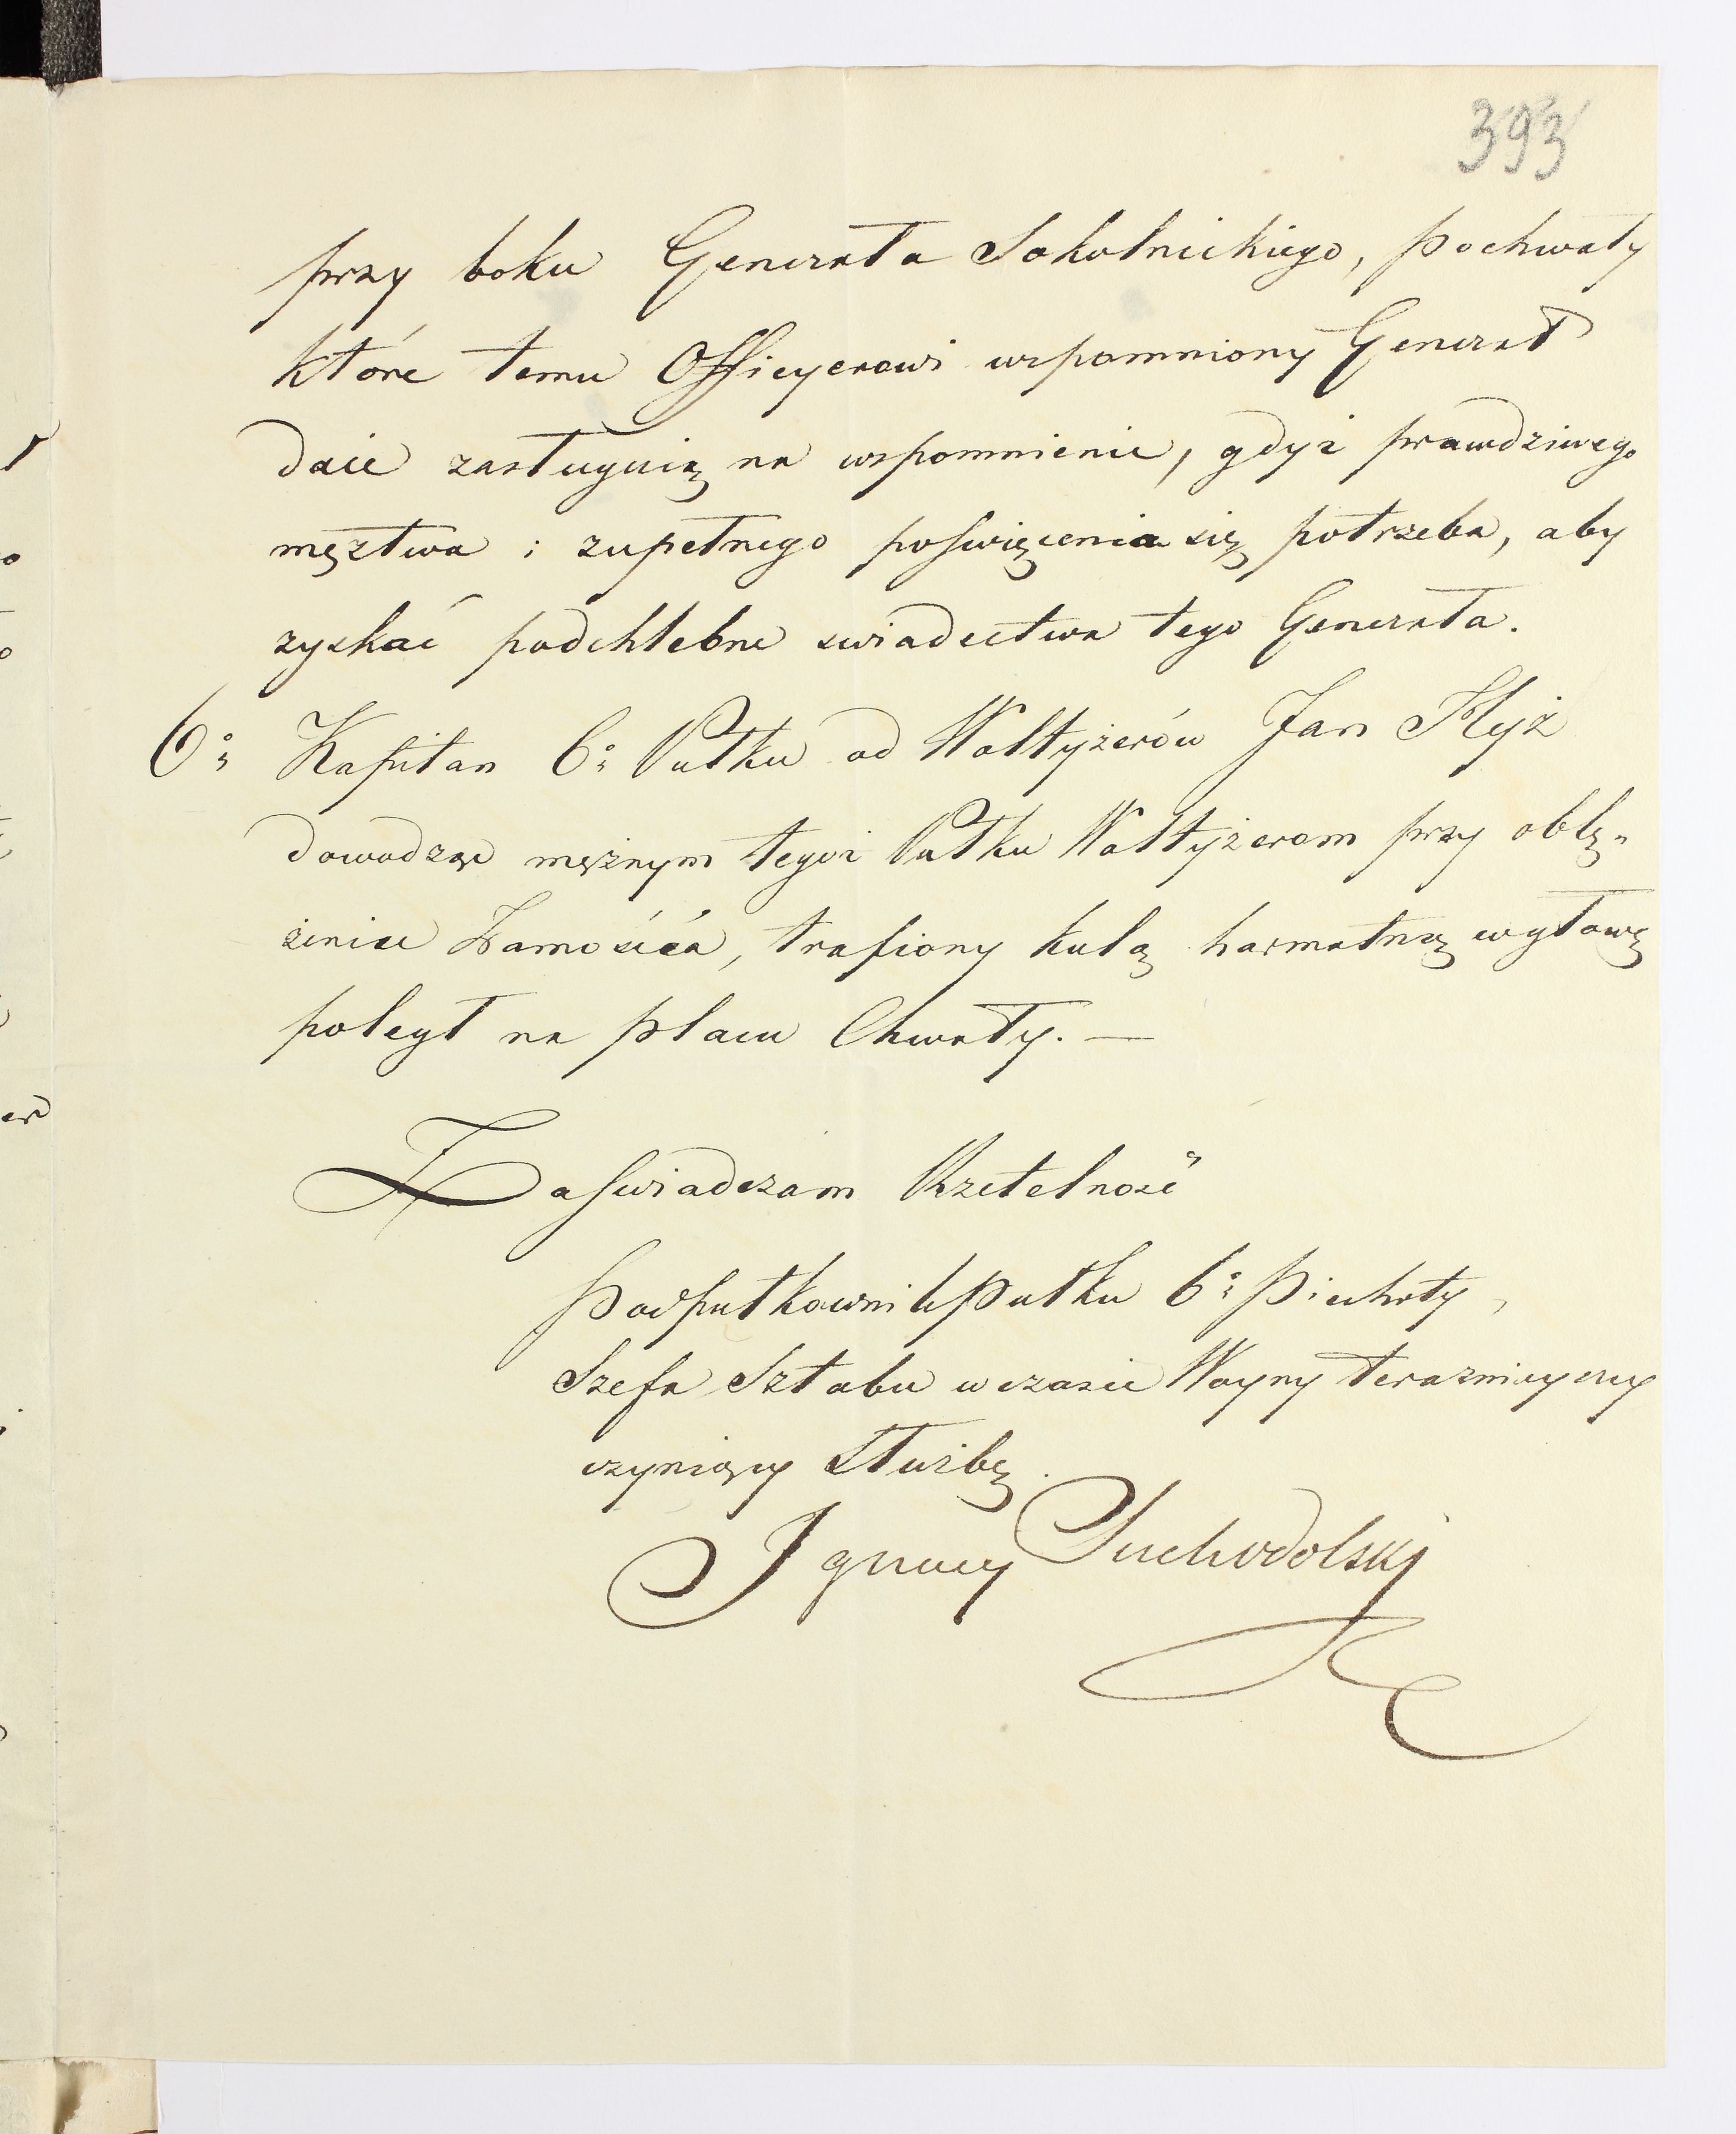 393
przy boku Generała Sokolnickiego, pochwały
które temu Officyerowi wspomniony Generał
daie zasługuią na wspomnienie, gdyż prawdziwego
męztwa i zupełnego poswięcenia się potrzeba, aby
zyskać podchlebne swiadectwa tego Generała.
6º: Kapitan 6º: Pułku od Woltyżerów Jan Hyż
dowodząc mężnym tegoż Pułku Woltyżerom przy oblę„
żeniu Zamościa, trafiony kulą harmatnią wylową
poległ na placu Chwały. —
Zaswiadczam Rzetelność
Podpułkownik Pułku 6º: Piechoty,
Szefa Sztabu w czasie Woyny teraznieyszey
czyniący służbę
Ignacy Suchodolski